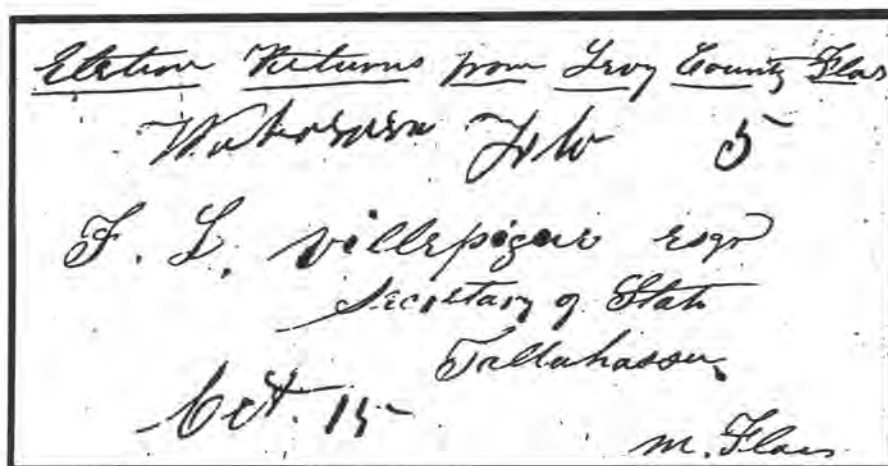 Election Returns from Levy County Flas
Wakasassa Feb 5
F. L. Villepigue esqr
Secretary of State
Tallahassee
Oct. 15
M. Flas